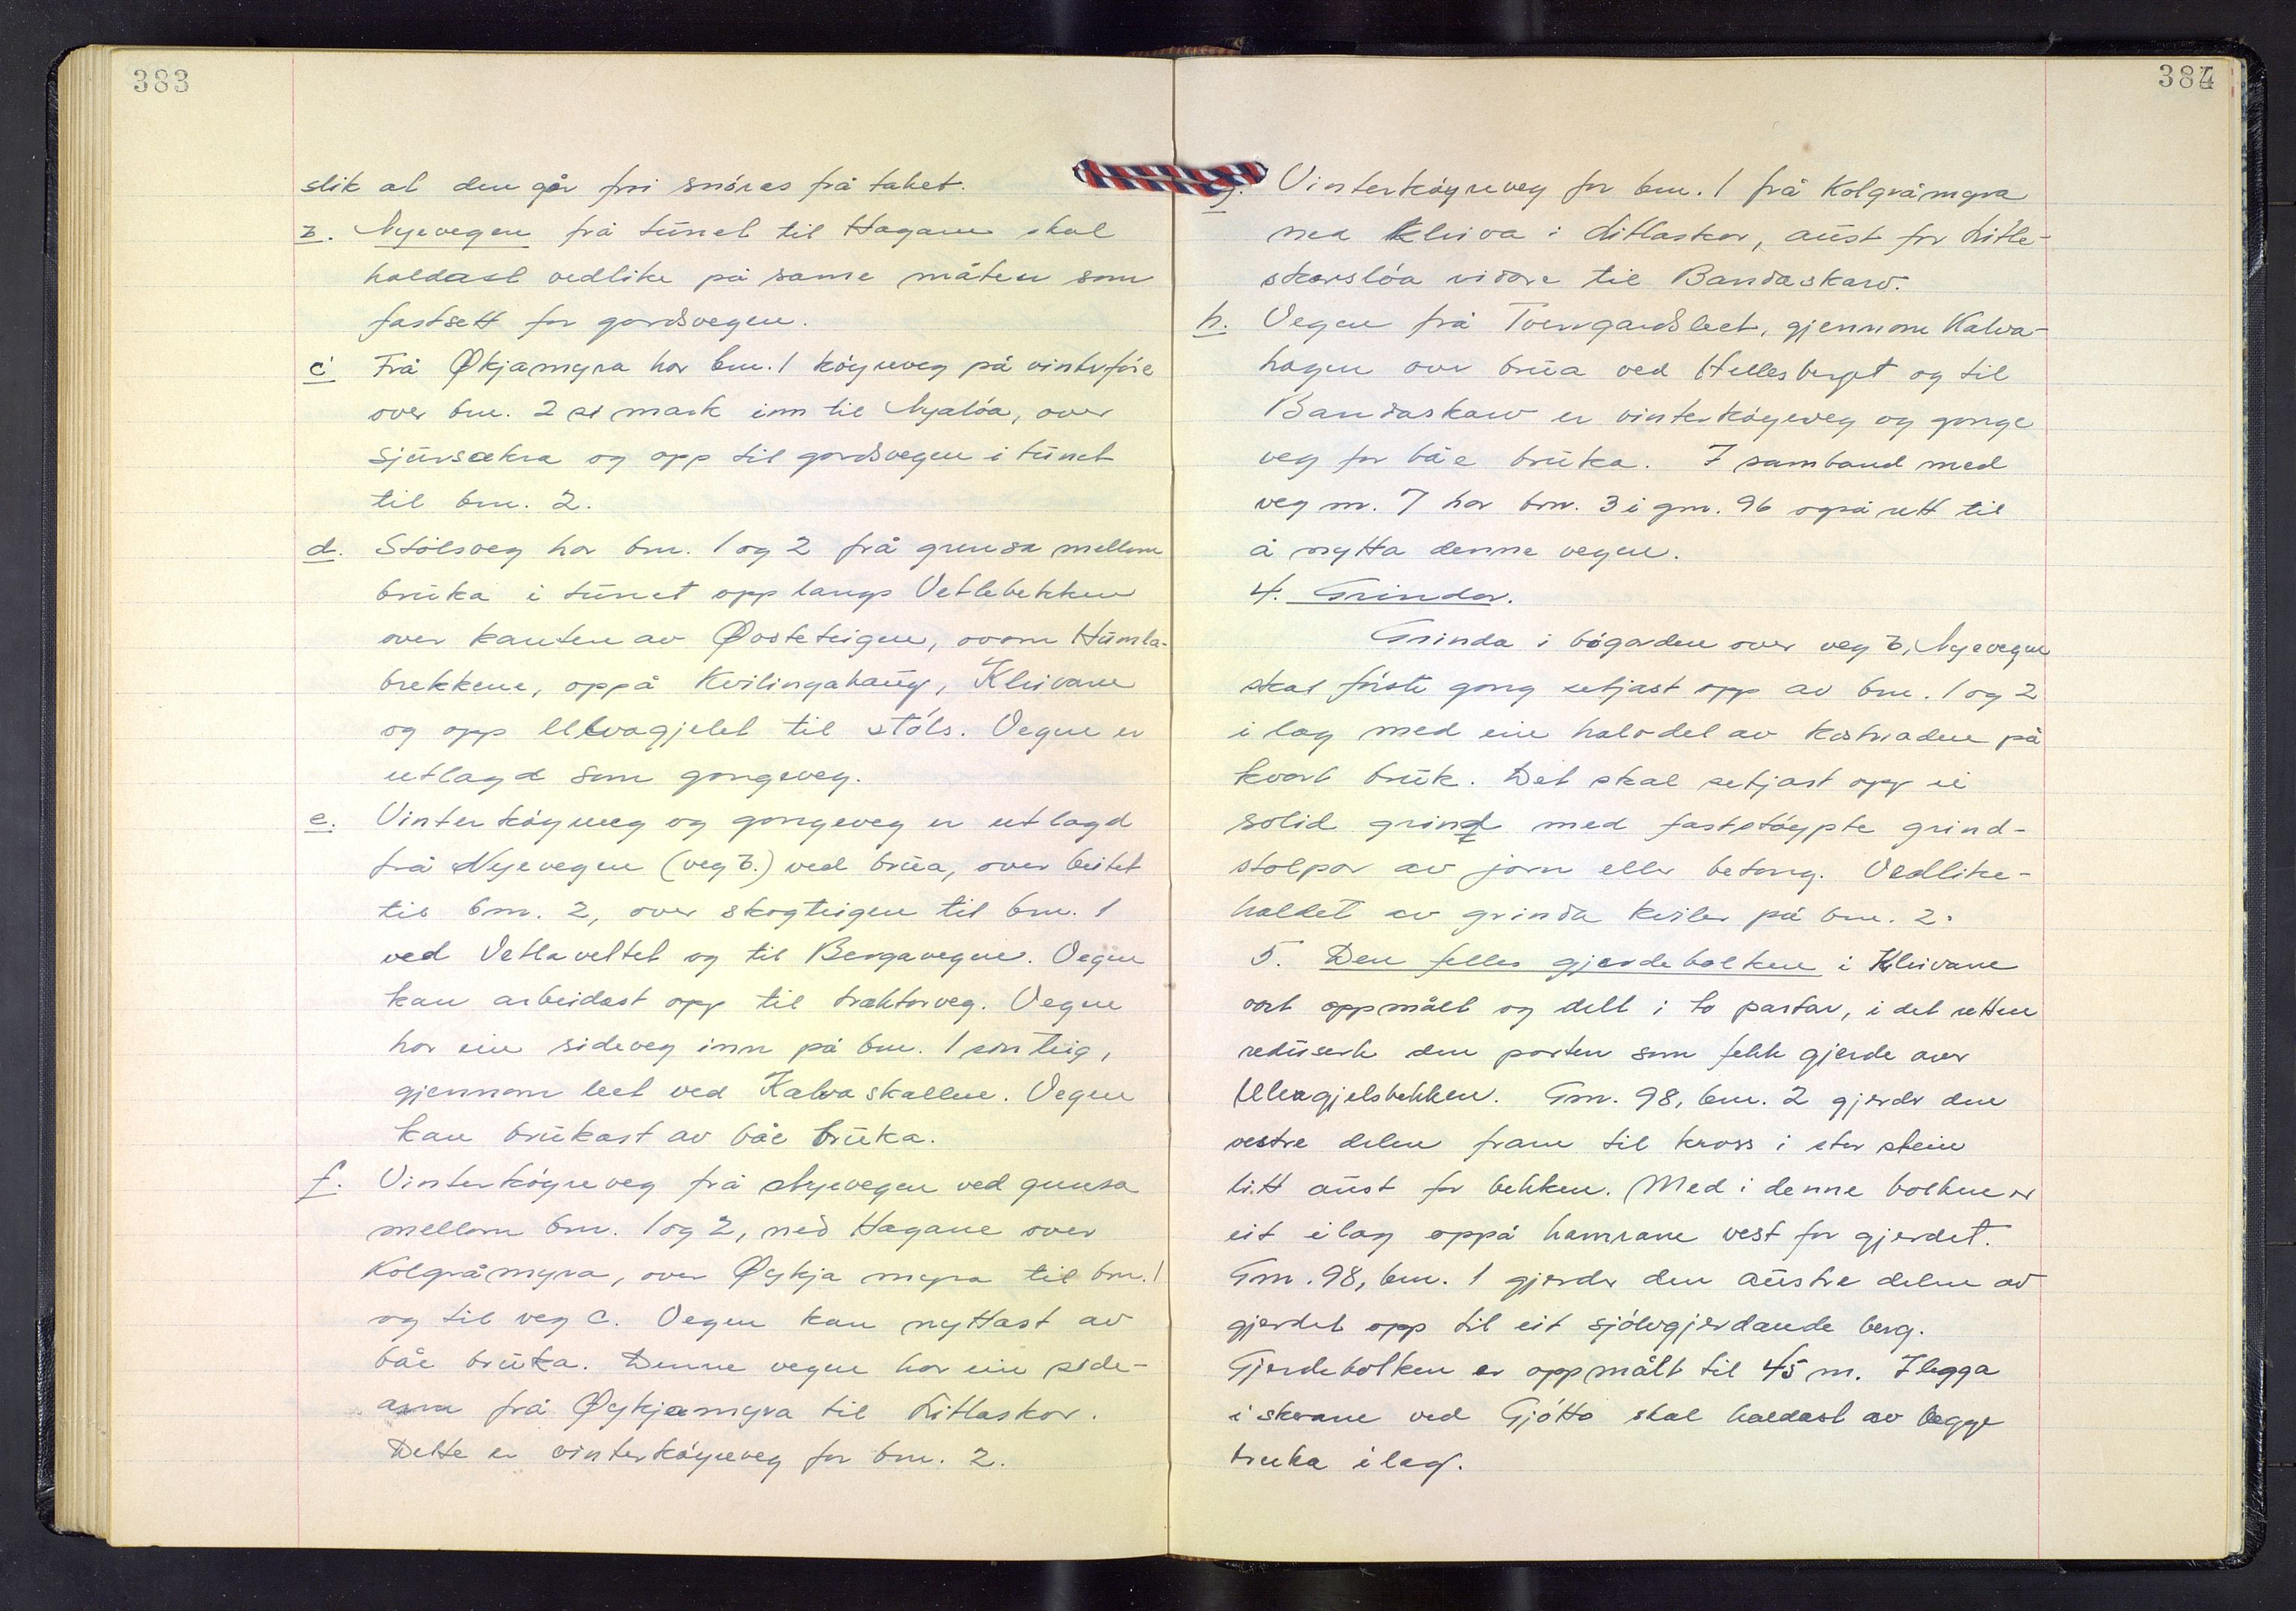 383
slik at den går fri snóras frå taket.
b. Nyevegen frå túnet til Hagane skal
haldast vedlike på same måten som
fastsett for gardsvegen.
c. Frå Økjamyra har bnr. 1 køyreveg på vinterføre
over bnr. 2 si mark inn til Nyalóa, over
Sjúrsækra og opp til gardsvegen i túnet
til bnr. 2.
d. Stólsveg har bnr. 1 og 2 frå grensa mellom
brúka i túnet opp langs Vetlebekken
over kanten av Øvsteteigen, ovom Húmla-
brekkene, oppå Kvilingahaúg, Kleivane
og opp Ulvagjelet til stóls. Vegen er
utlagd som gongeveg.
e. Vinterkóyreveg og gongeveg er utlagd
frå Nyevegen (veg b.) ved brúa, over beitet
til bnr. 2, over skogteigen til bnr. 1
ved Vetlaveltet og til Bergavegen. Vegen
kan arbeidast opp til traktorveg. Vegen
har ein sideveg inn på bnr. 1 sin teig,
gjennom leet ved Kalvaskallen. Vegen
kan brúkast av båe brúka.
f. Vinterkóyreveg frå Nyevegen ved grensa
mellom bnr. 1 og 2, ned Hagane over
Kolgråmyra, over Øykjamyra til bnr. 1
og til veg c. Vegen kan nyttast av
båe brúka. Denne vegen har ein side-
arm frå Øykjamyra til Litlaskor.
Dette er vinterkóyreveg for bnr. 2.
384
g. Vinterkóyreveg for bnr. 1 frå Kolgråmyra
ned Kleiva i Litlaskor, aúst for Litle-
skorslóa vidare til Bandaskarv.
h. Vegen frå Tverrgardsleet, gjennom Kalva-
hagen over brúa ved Hellesberget og til
Bandaskarv er vinterkóyreveg og gonge
veg for båe brúka. I samband med
veg nr. 7 har bnr. 3 i gnr. 96 også rett til
å nytta denne vegen.
4. Grinder.
Grinda i bógarden over veg b, Nyevegen
skal fórste gong setjast opp av bnr. 1 og 2
i lag med ein halvdel av kostnaden på
kvart brúk. Det skal setjast opp ei
solid grind med faststóypte grind-
stolpar av jarn eller betong. Vedlike-
haldet av grinda kviler på bnr. 2.
5. Den felles gjerdebolken i Kleivane
vart oppmålt og delt i to partar, i det retten
redúserte den parten som fekk gjerde over
Ulvagjelsbekken. Gnr. 98, bnr. 2 gjerder den
vestre delen fram til kross i stor stein
litt aúst for bekken. Med i denne bolken er
eit ilag oppå hamrane vest for gjerdet.
Gnr. 98, bnr. 1 gjerder den aústre delen av
gjerdet opp til eit sjólvgjerdande berg.
Gjerdebolken er oppmålt til 45 m. Ilegga
i skorane ved Gjótto skal haldast av begge
bruka i lag.